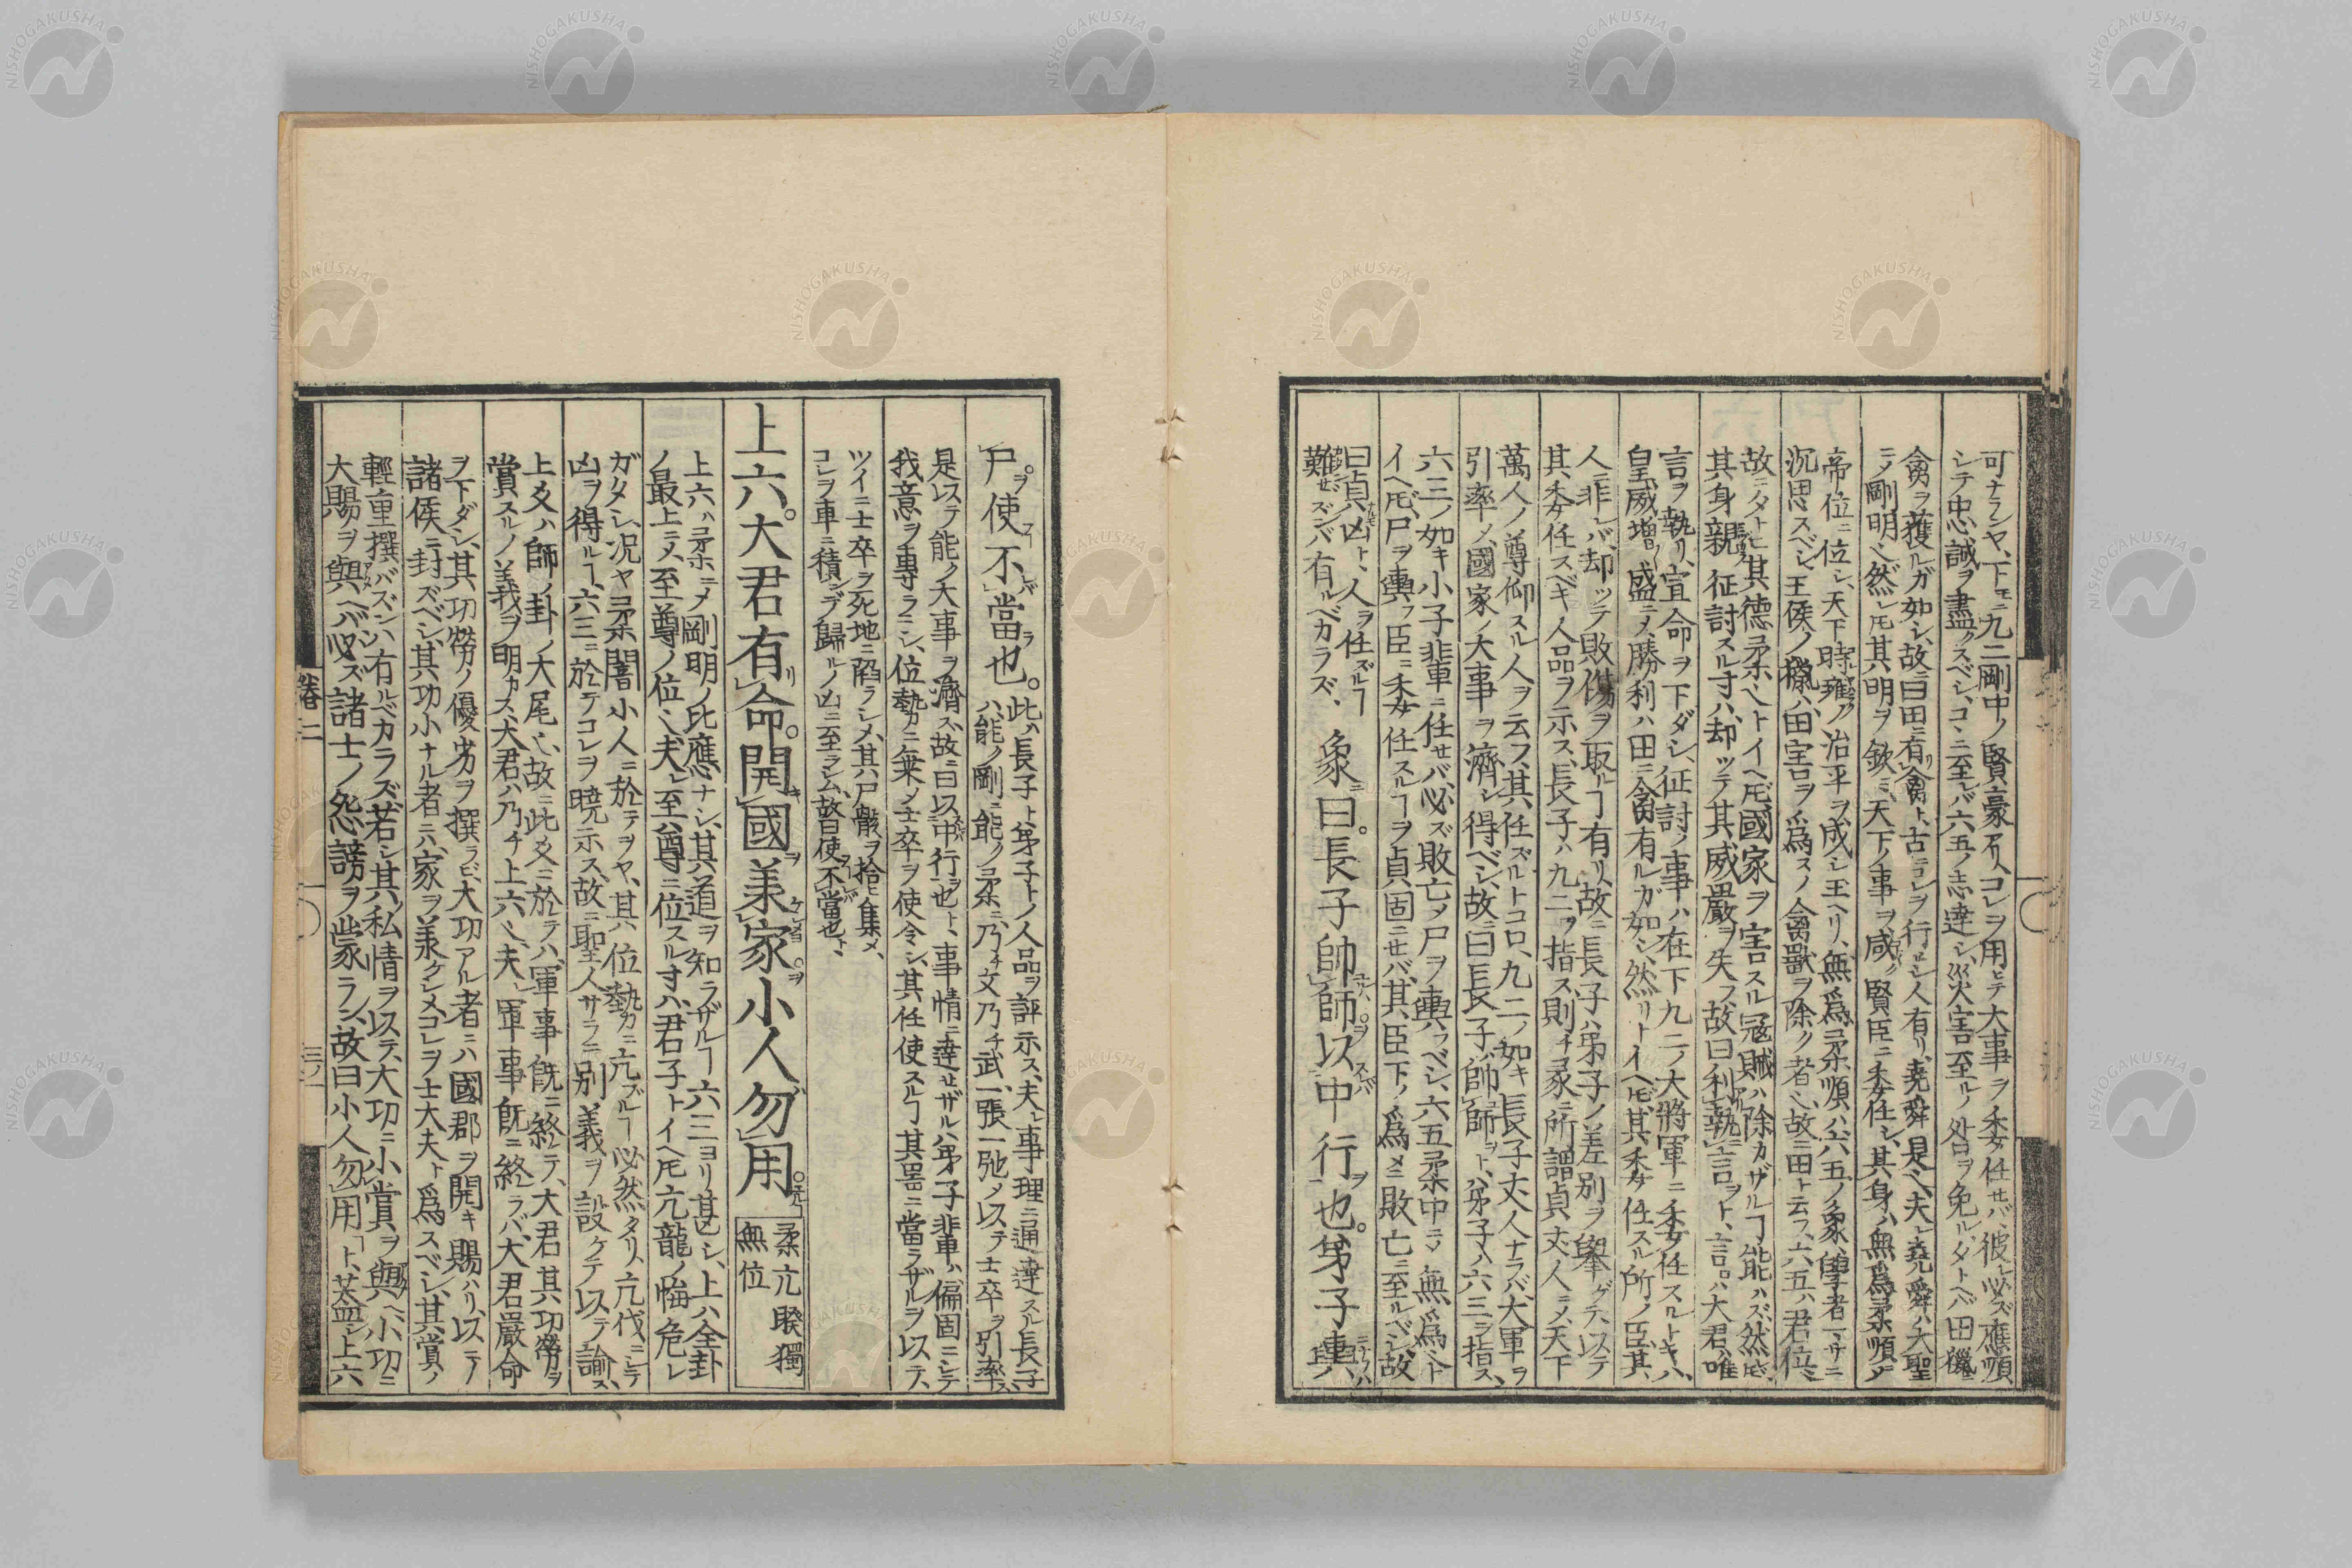 可ナランヤ、下モニ九二剛中ノ賢豪アリ、コレヲ用ヒテ大事ヲ委任セバ、彼レ必ズ應順
シテ忠誠ヲ盡クスベシ、コヽニ至レバ六五ノ志達シ、災害至ルノ咎ヲ免ル、タトヘバ田獵ニ
禽ヲ獲ルガ如シ、故ニ曰田ニ有禽ト、古ニコレヲ行ヒシ人有リ、堯舜是也、夫レ堯舜ハ大聖
ニノ剛明也、然レ圧其明ヲ欽ミ、天下ノ事ヲ咸ク賢臣ニ委任シ、其身ハ無爲柔順ニ
帝位ニ位シ、天下時雍ノ治平ヲ成シ玉ヘリ、無爲柔順ハ六五ノ象、學者マサニ
沉思スベシ、王侯ノ獵ハ田害ヲ爲スノ禽獸ヲ除ク者也、故ニ田ト云フ、六五ハ君位
故ニタトヒ其德柔也トイヘ圧國家ヲ害スル寇賊ハ除カザルヿ能ハズ、然圧
其身親征討スル寸ハ、却ッテ其威嚴ヲ失フ、故曰利執言ヲト、言ハ大君唯
言ヲ執リ、宜命ヲ下ダシ、征討ノ事ハ在下九二ノ大將軍ニ委任スルトキハ、
皇威增〻盛ニノ、勝利ハ田ニ禽有ルカ如シ、然リトイヘ圧其委任スル所ノ臣、其
人ニ非レバ、却ッテ敗傷ヲ取ルヿ有リ、故ニ長子ハ弟子ノ差別ヲ擧ゲテ、以テ
其委任スベキ人品ヲ示ス、長子ハ九二ヲ指ス、則チ彖ニ所謂貞丈人ニメ、天下
萬人ノ尊仰スル人ヲ云フ、其任ズルトコロ、九二ノ如キ長子丈人ナラバ、大軍ヲ
引率メ、國家ノ大事ヲ濟シ得ベシ、故ニ曰長子帥師ヲト、弟子ハ六三ヲ指ス、
六三ノ如キ小子輩ニ任セバ、必ズ敗亡メ尸ヲ輿フベシ、六五柔中ニメ無爲也ト
イヘ圧、尸ヲ輿フ臣ニ委任スルヿヲ貞固ニセバ、其臣下ノ爲メニ敗亡ニ至ルベシ、故
曰貞凶ト、人ヲ任ズルヿ
難ゼズンバ有ルベカラズ、 象曰。長子帥師。以中行也。弟子輿
尸使不當也。此ハ長子ト弟子トノ人品ヲ評示ス、夫レ事理ニ通達スル長子
ハ能ノ剛ニ能ノ柔ニ、乃チ文乃チ武、一張一弛メ、以テ士卒ヲ引率ス、
是以テ能ク大事ヲ濟ス、故ニ曰以中行也ト、事情ニ達セザル弟子輩ハ偏固ニシテ
我意ヲ專ラニシ、位勢カニ乗メ士卒ヲ使令シ、其任使スルヿ其器ニ當ラザルヲ以テ、
ツイニ士卒ヲ死地ニ陷ラシメ、其尸骸ヲ拾ヒ集メ、
コレヲ車ニ積ンデ歸ルノ凶ニ至ラム、故曰使不當也ト、
上六。大君有命。開國羕家。小人勿用。
柔亢 睽獨
無位
上六ハ柔ニメ剛明ノ比應ナシ、其道ヲ知ラザルヿ六三ヨリ甚シ、上ハ全卦
ノ最上ニメ、至尊ノ位也、夫レ至尊ニ位スル寸ハ、君子トイヘ圧亢龍ノ悔危レ
ガタシ、況ヤ柔闇小人ニ於テヲヤ、其位勢カニ亢ズルヿ必然タリ、亢伐ニシテ
凶ヲ得ルヿ、六三ニ於テコレヲ曉示ス、故ニ聖人サラニ別義ヲ設ケテ以テ諭ス、
上爻ハ師ノ卦ノ大尾也、故ニ此爻ニ於テハ、軍事既ニ終テ、大君其功勞ヲ
賞スルノ義ヲ明カス、大君ハ乃チ上六也、夫レ軍事既ニ終ラバ、大君嚴命
ヲ下ダシ、其功勞ノ優劣ヲ撰ラビ、大功アル者ニハ國郡ヲ開キ賜ハリ、以テノ
諸侯ニ封ズベシ、其功小ナル者ニハ、家ヲ羕ケシメ、コレヲ士大夫ト爲スベシ、其賞ノ
輕重撰バズンバ有ルベカラズ、若シ其私情ヲ以テ、大功ニ小賞ヲ與ヘ、小功ニ
大賜ヲ與ヘバ、必ズ諸士ノ怨謗ヲ蒙ラン、故曰小人勿用ト、葢シ上六
卷二